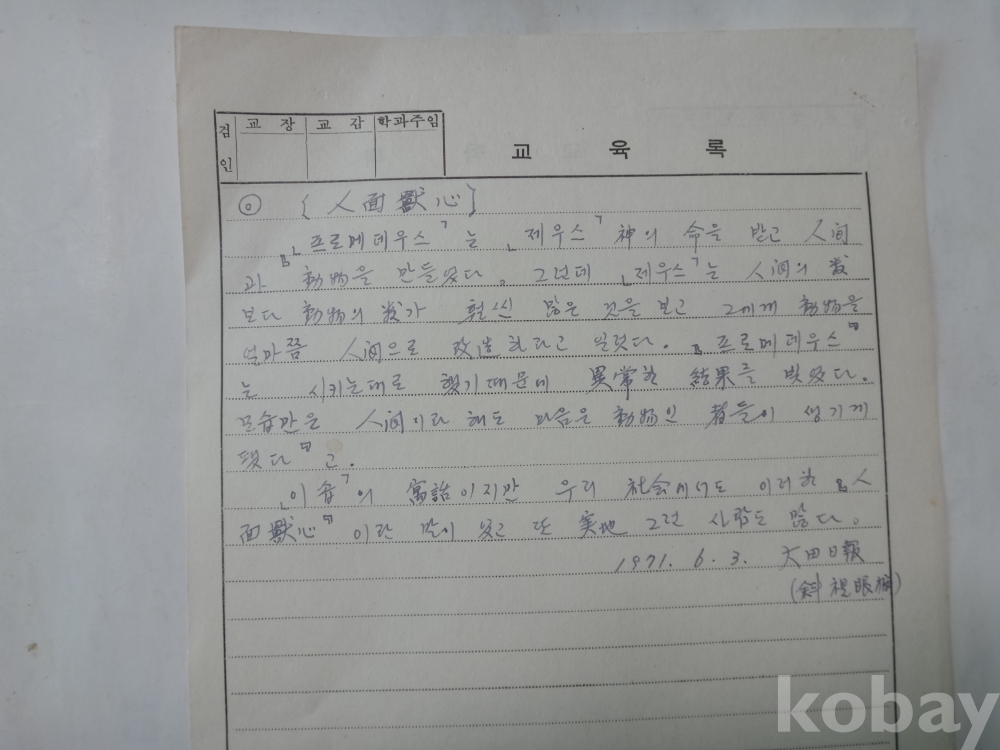 검인 교장 교감 학과주임
교육록
◎ [人面獸心]
『「프로메데우스」는 「제우스」神의 命을 받고 人间
과 動物을 만들었다. 그런데 「제우스」는 人间의 数
보다 動物의 数가 훨씬 많은 것을 보고 그에게 動物을
얼마쯤 人间으로 改造하라고 일렀다. 『프로메데우스』
는 시키는대로 했기때문에 異常한 結果를 빚었다.
모습만은 人间이라 해도 마음은 動物인 者들이 생기게
됐다』고.
「이솝」의 寓話이지만 우리 社会에서도 이러한 『人
面獸心』이란 말이 있고 또 実地 그런 사람도 많다.
1971. 6. 3. 大田日報
(斜視眼)
kobay